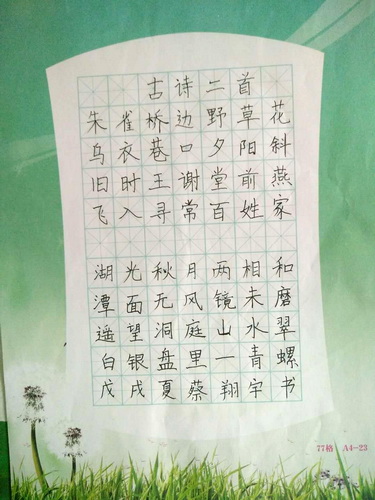 古诗二首
朱雀桥边野草花
乌衣巷口夕阳斜
旧时王谢堂前燕
飞入寻常百姓家
湖光秋月两相和
潭面无风镜未磨
遥望洞庭山水翠
白银盘里一青螺
戊戌夏蔡翔宇书
77格 A4-23